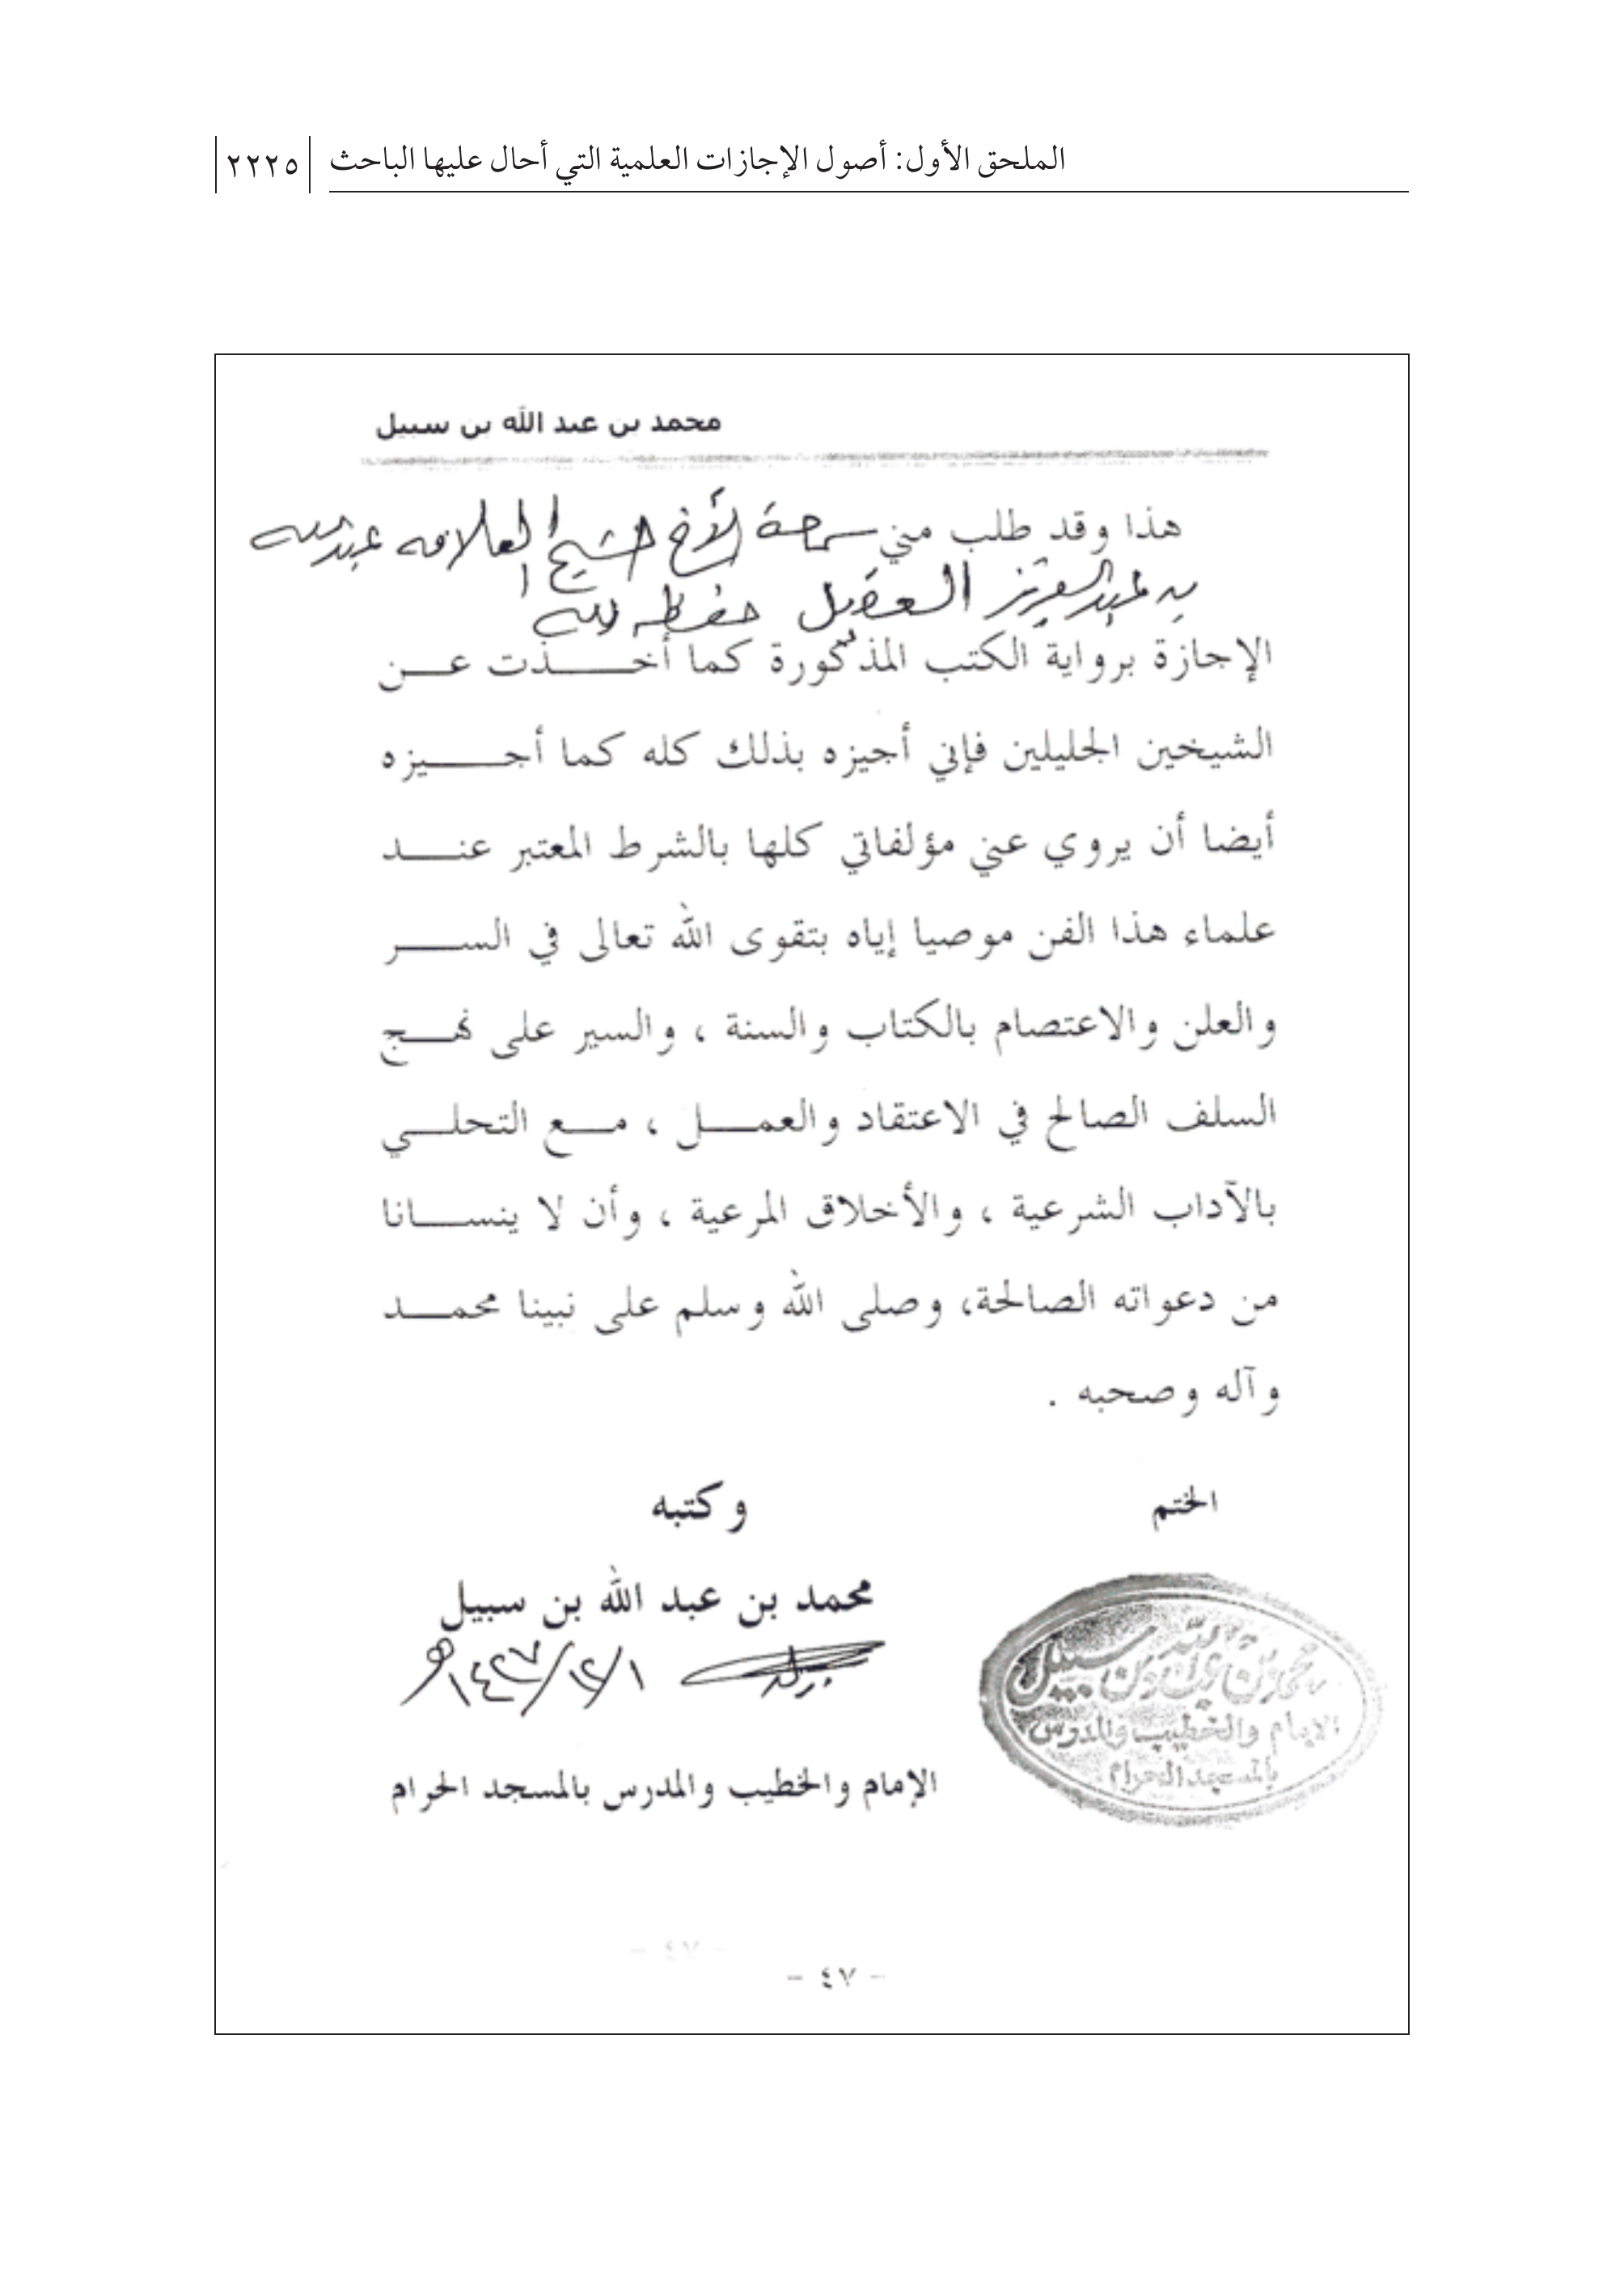 الملحق الأول: أصول الإجازات العلمية التي أحال عليها الباحث ٢٢٢٥
محمد بن عبد الله بن سبيل
هذا وقد طلب مني سماحة الأخ الشيخ العلامه عبدالله
بن عبدالعزيز العقيل حفظه الله
الإجازة برواية الكتب المذكورة كما أخذت عن
الشيخين الجليلين فإني أجيزه بذلك كله كما أجيزه
أيضا أن يروي عني مؤلفاتي كلها بالشرط المعتبر عند
علماء هذا الفن موصيا إياه بتقوى الله تعالى في السر
والعلن والاعتصام بالكتاب والسنة ، والسير على نهج
السلف الصالح في الاعتقاد والعمل ، مع التحلي
بالآداب الشرعية ، والأخلاق المرعية ، وأن لا ينسانا
من دعواته الصالحة، وصلى الله وسلم على نبينا محمد
وآله وصحبه .
الختم
وكتبه
محمد بن عبد الله بن سبيل
محمد بن عبد الله بن سبيل
الإمام والخطيب والمدرس
بالمسجد الحرام
الإمام والخطيب والمدرس بالمسجد الحرام
- ٤٧ -
- ٤٧ -